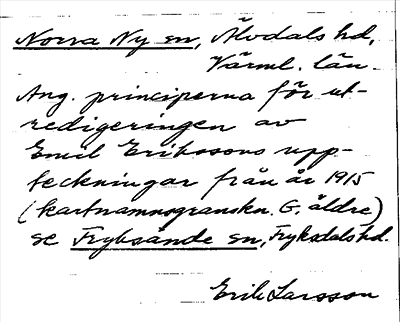 Norra Ny sn, Älvdals hd,
Värml. län.
Ang. principerna för ut-
redigeringen av
Emil Erikssons upp-
teckningar från år 1915
(kartnamnsgranskn. G. äldre)
se Fryksände sn, Fryksdals hd.
Erik Larsson